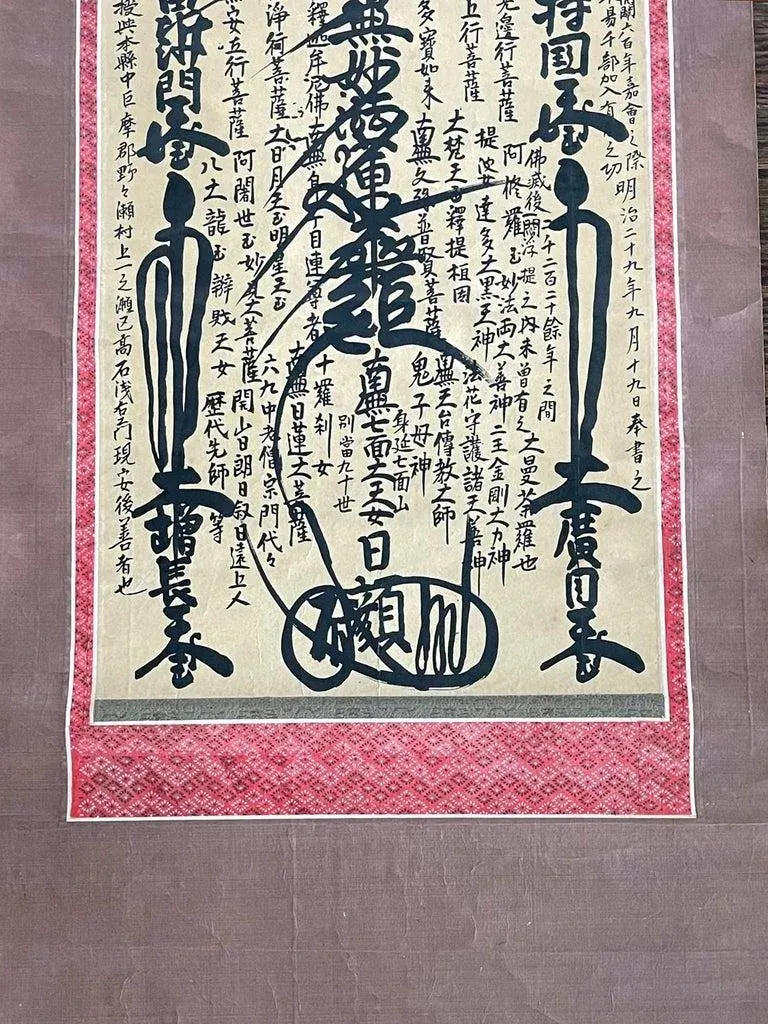 開闢六百年嘉會之際明治二十九年九月十九日奉書之
易千部加入有之功
持国天王
大廣目天王
佛滅後二千二百二十餘年之間
一閻浮提之内未曾有之大曼荼羅也
无邊行菩薩
阿修羅王妙法両大善神二王金剛大力神
上行菩薩
提婆達多大黒天神法花守護諸天善神
大梵天王釋提桓因
鬼子母神
多寶如来
南無文殊普賢菩薩
南無天台傳教大師
無妙法蓮華經
南無七面大天女
身延七面山
別當九十世
日顗
釋迦牟尼佛
南無身子目連尊者
十羅刹女
淨行菩薩
大日月天王明星天王
南無日蓮大菩薩
安立行菩薩
阿闍世王妙見大菩薩
六九中老僧宗門代々
八大龍王辯財天女
開山日朗日叙日遠上人
歴代先師等
毘沙門天王
大増長天王
授與本縣中巨摩郡野々瀬村上一之瀬区高石浅右門現安後善者也